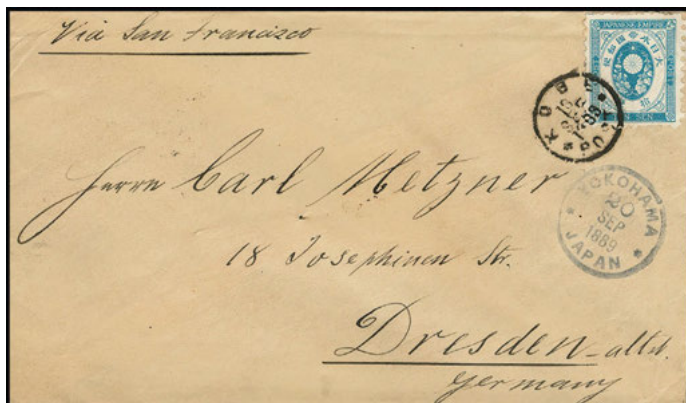 Via San Francisco
JAPANESE EMPIRE
SEN
KOBE
1889
YOKOHAMA
20
SEP
1889
JAPAN
Herrn Carl Metzner
18 Josephinen Str.
Dresden-altst.
Germany